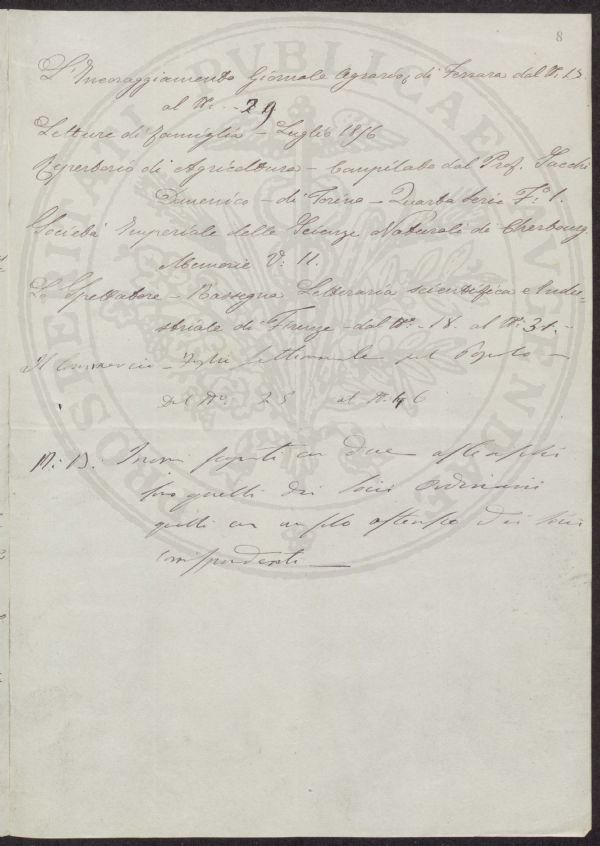 8
L'Incoraggiamento Giornale Agrario, di Ferrara dal N. 13
al N. 29
Letture di famiglia - Luglio 1856
Repertorio di Agricoltura - Compilato dal Prof. Sacchi
Domenico - di Torino - Quarta Serie F.o 1.
Società Imperiale delle Scienze Naturali di Cherbourg
Memorie V: II.
Lo Spettatore - Rassegna Letteraria scientifica e Indu-
striale di Firenze - dal No. 18. al N. 31. -
Il Commercio - Foglio Settimanale pel Popolo -
Dal No. 25 al N. 46
N: B. I nomi segnati con due asterischi
sono quelli dei Soci Ordinarii
quelli con un solo asterisco dei Soci
corrispondenti
POSTERITATI PUBLICAE